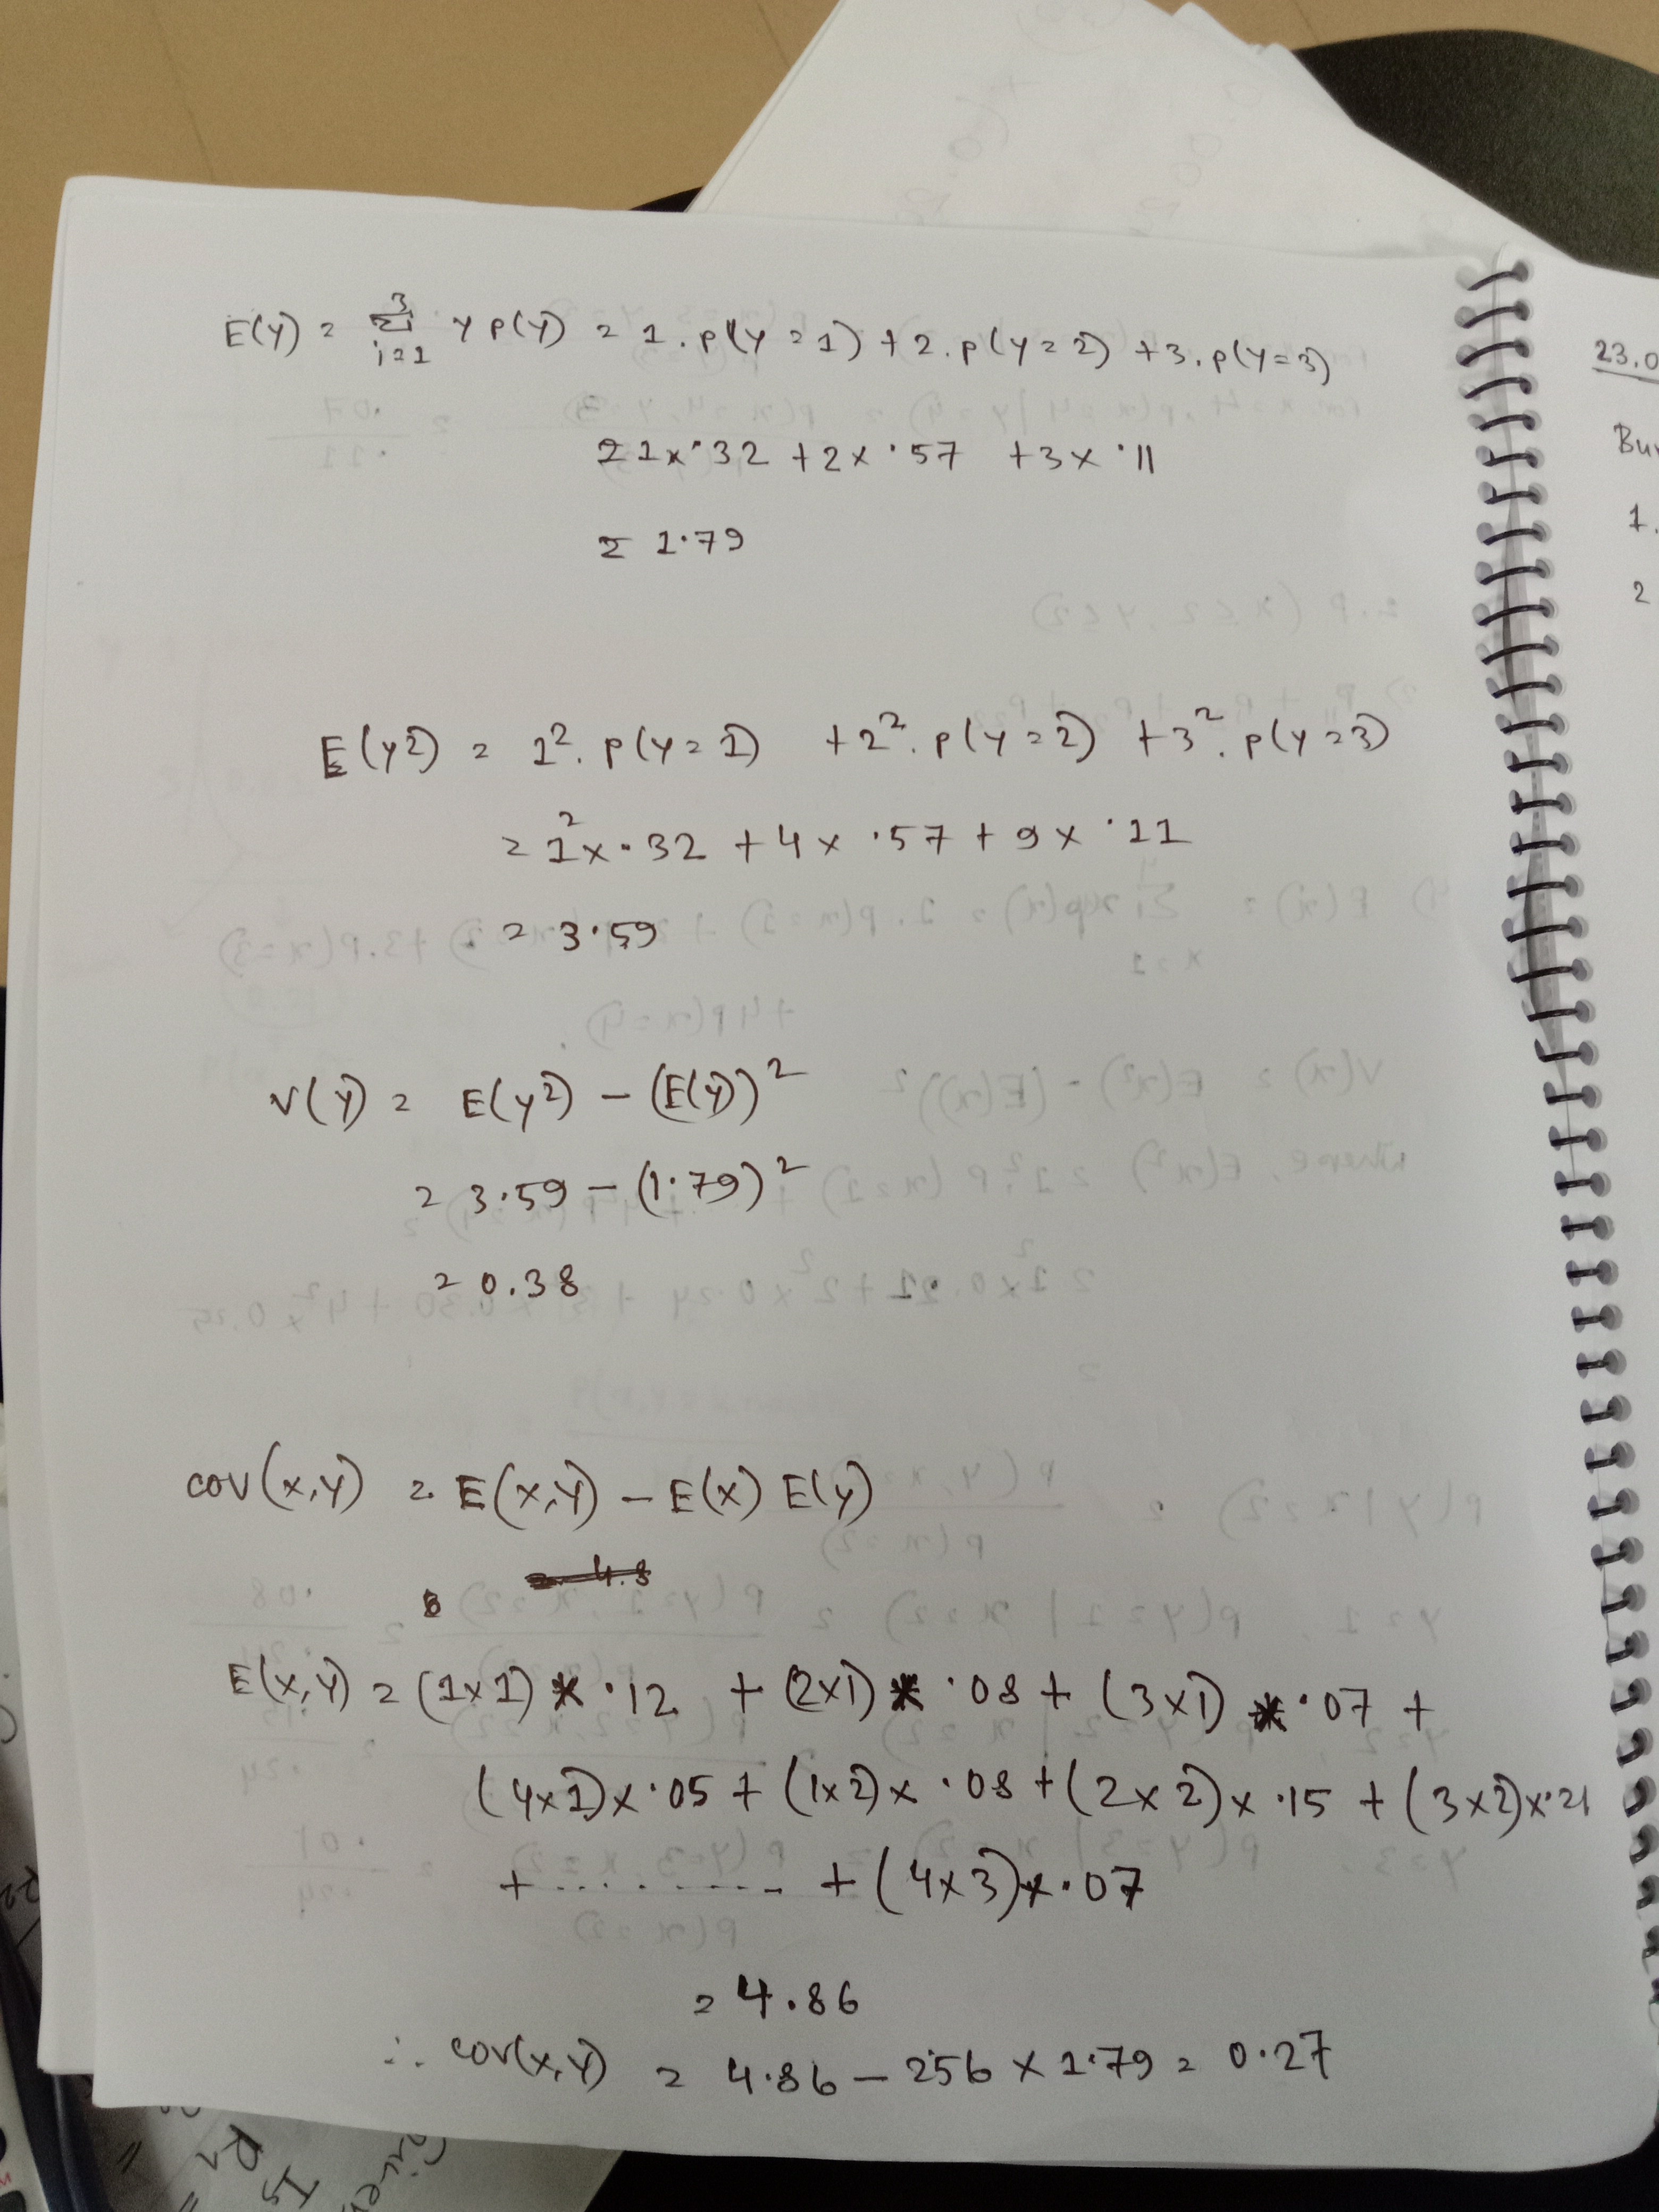 E(Y) = 3 Σ i=1 Y P(Y) = 1.P(Y=1) + 2.P(Y=2) + 3.P(Y=3)
= 1x·32 + 2x·57 + 3x·11
= 1·79
E(Y2) = 1². P(Y=1) + 2². P(Y=2) + 3². P(Y=3)
= 1²x·32 + 4x·57 + 9x·11
= 3·59
V(Y) = E(Y2) - (E(Y))²
= 3·59 - (1·79)²
= 0.38
cov(x,y) = E(x,y) - E(x) E(y)
E(x,y) = (1x1) * ·12 + (2x1) * ·08 + (3x1) * ·07 +
(4x1)x·05 + (1x2)x·08 + (2x2)x·15 + (3x2)x·21
+ .......... + (4x3)x·07
= 4.86
∴ cov(x,y) = 4.86 - 2.56 x 1.79 = 0.27
23.0
Bur
1.
2